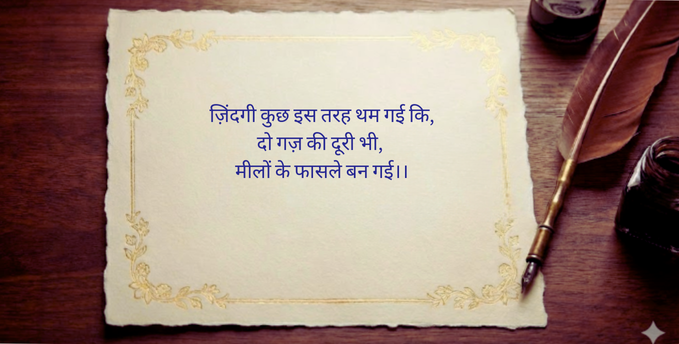 ज़िंदगी कुछ इस तरह थम गई कि,
दो गज़ की दूरी भी,
मीलों के फासले बन गई।।